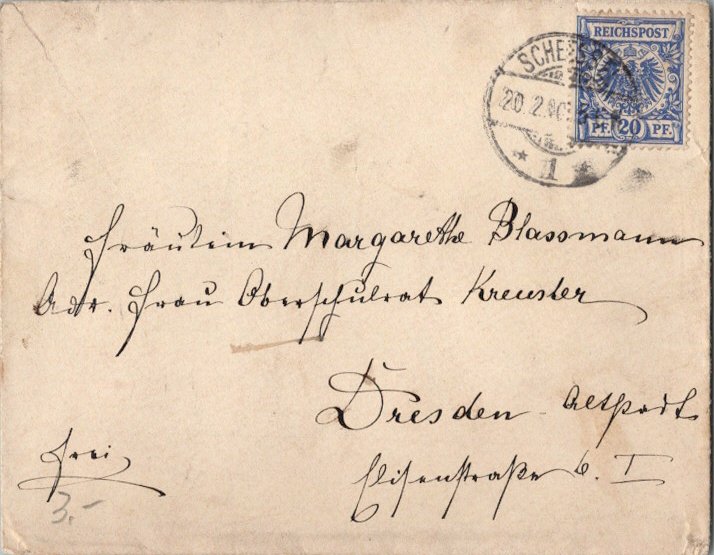 REICHSPOST
PF. 20 PF.
20. 2.
* 1 *
Fräulein Margarethe Blassmann
Adr. Frau Oberschulrat Kreusler
Dresden - Altstadt
Elisenstraße 6. I
frei
3.-